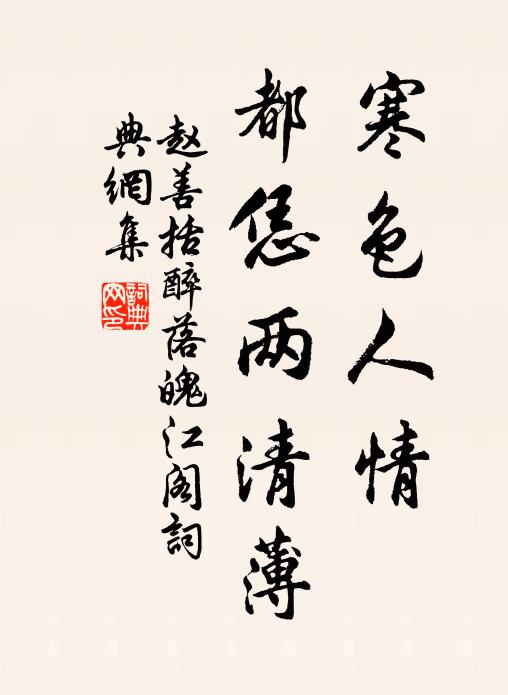 寒色人情
都恁两清薄
赵善括醉落魄江阁詞
典網集
詞典网印